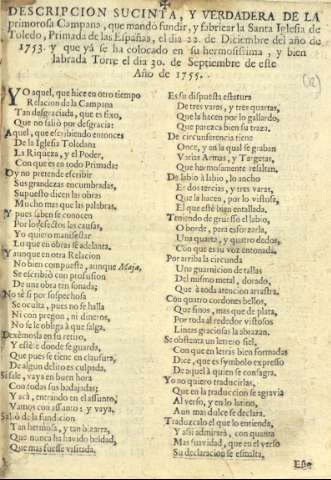 DESCRIPCION SUCINTA, Y VERDADERA DE LA
primorosa Campana, que mandò fundir, y fabricar la Santa Iglesia de
Toledo, Primada de las Españas, el dia 22. de Diciembre del año de
1753. y que yà se ha colocado en su hermosissima, y bien
labrada Torre el dia 30. de Septiembre de este
Año de 1755.
YO aquel, que hice en otro tiempo
Relacion de la Campana
Tan desgraciada, que es fixo,
Que no saliò por desgracia:
Aquel, que escribiendo entonces
De la Iglesia Toledana
La Riqueza, y el Poder,
Con que es en todo Primada:
Oy no pretende escribir
Sus grandezas encumbradas,
Supuesto dicen las obras
Mucho mas que las palabras.
Y pues saben se conocen
Por los efectos las causas,
Yo quiero manifestar
Lo que en obras se adelanta.
Y aunque en otra Relacion
No bien compuesta, aunque Maja,
Se escribiò con profusion
De una obra tan sonada;
No sè si por sospechosa
Se oculta, pues no se halla
Ni con pregon, ni dineros,
No se le obliga à que salga.
Dexèmosla en su retiro,
Y estè donde se guarda,
Que pues se tiene en clausura,
De algun delito es culpada.
Si sale, vaya en buen hora
Con todas sus badajadas;
Y acà, entrando en el assunto,
Vamos con assunto: y vaya.
Saliò de la fundicion
Tan hermosa, y tan bizarra,
Que nunca ha havido beldad,
Que mas fuesse visitada.
Es su dispuesta estatura
De tres varas, y tres quartas,
Que la hacen por lo gallardo,
Que parezca bien su traza.
De circunferencia tiene
Once, y en la qual se graban
Varias Armas, y Targetas,
Que hermosamente resaltan.
De labio à labio, lo ancho
Es dos tercias, y tres varas,
Que la hacen, por lo vistosa,
El que estè bien entallada.
Teniendo de gruesso el labio,
O borde, para esforzarla,
Una quarta, y quatro dedos,
Con que es su voz entonada.
Por arriba la circunda
Una guarnicion de tallas
Del mismo metal, dorado,
Que à toda atencion arrastra.
Con quatro cordones bellos,
Que finos, mas que de plata,
Por toda al rededor vistosos
Lineas graciosas la abrazan.
Se obstenta un letrero siel,
Con que en letras bien formadas
Dice, que es symbolo expresso
De aquel à quien se consagra,
Yo no quiero traducirlas,
Que en la traduccion se agravia
Al verso, y en lo latino,
Aun mas dulce se declara.
Traduzcalo el que lo entienda,
Y assi admirarà, con quanta
Mas suavidad, que en el verso
Su declaracion se esmalta,
Este